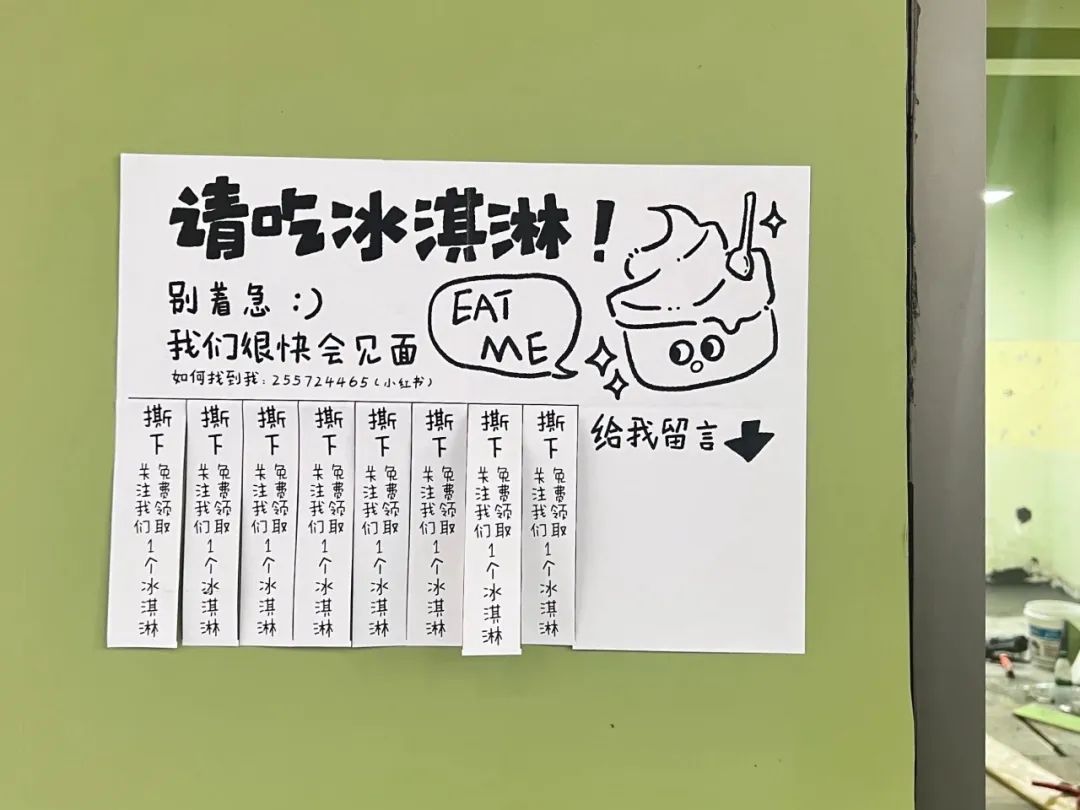 请吃冰淇淋！
别着急 :)
我们很快会见面
如何找到我：255724465（小红书）
EAT
ME
给我留言
撕下
关注我们
免费领取
1个冰淇淋
撕下
关注我们
免费领取
1个冰淇淋
撕下
关注我们
免费领取
1个冰淇淋
撕下
关注我们
免费领取
1个冰淇淋
撕下
关注我们
免费领取
1个冰淇淋
撕下
关注我们
免费领取
1个冰淇淋
撕下
关注我们
免费领取
1个冰淇淋
撕下
关注我们
免费领取
1个冰淇淋